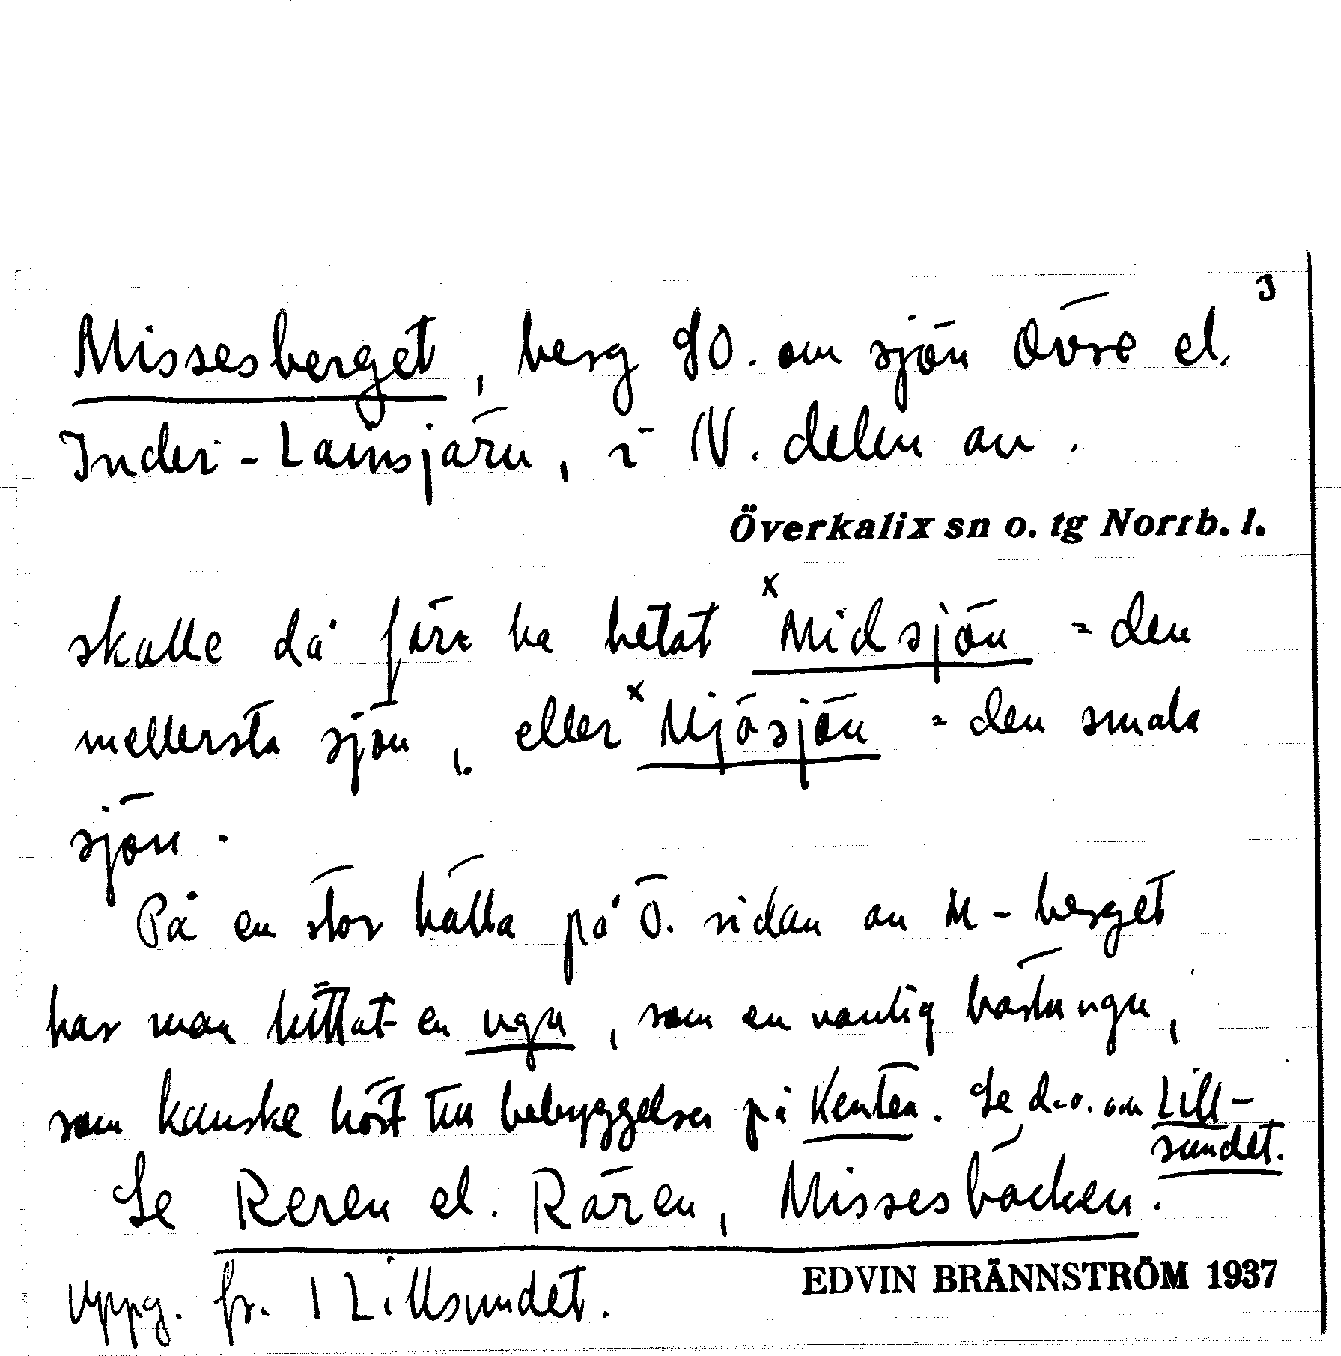 3
Missesberget, berg SO. om sjön Övre el.
Inder-Lainsjärv, i N. delen av.
Överkalix sn o. tg Norrb. l.
skulle då förr ha hetat ˣMidsjön = den
mellersta sjön, eller ˣMjösjön = den smala
sjön.
På en stor hälla på Ö. sidan av M-berget
har man hittat en ugn, som en vanlig bastuugn,
som kanske hört till bebyggelsen på Kenten. Se d.o. om Lill-
sundet.
Se Reren el. Rären, Missesbäcken.
Uppg. fr. 1 Lillsundet.
EDVIN BRÄNNSTRÖM 1937